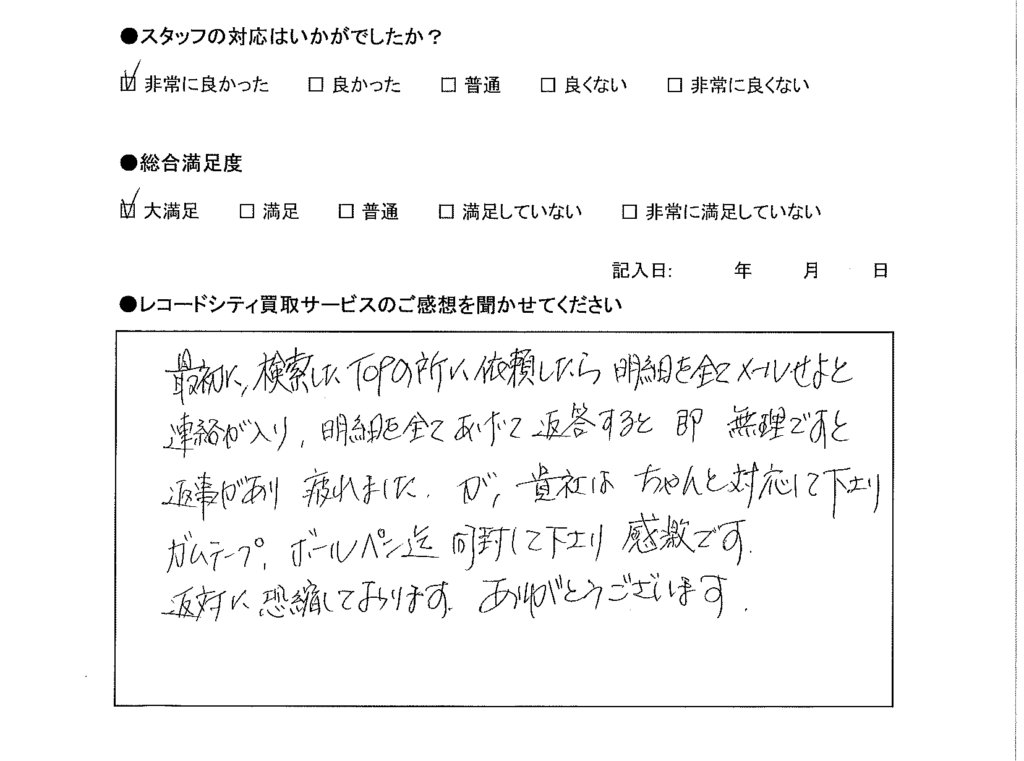 ●スタッフの対応はいかがでしたか？
☑ 非常に良かった □ 良かった □ 普通 □ 良くない □ 非常に良くない
●総合満足度
☑ 大満足 □ 満足 □ 普通 □ 満足していない □ 非常に満足していない
記入日: 年 月 日
●レコードシティ買取サービスのご感想を聞かせてください
最初に，検索したTOPの所に依頼したら 明細を全てメールせよと
連絡が入り，明細を全てあげて返答すると 即 無理ですと
返事があり 疲れました．が，貴社は ちゃんと対応して下さり
ガムテープ，ボールペン迄 同封して下さり 感激です．
返対に 恐縮しております．ありがとうございます．